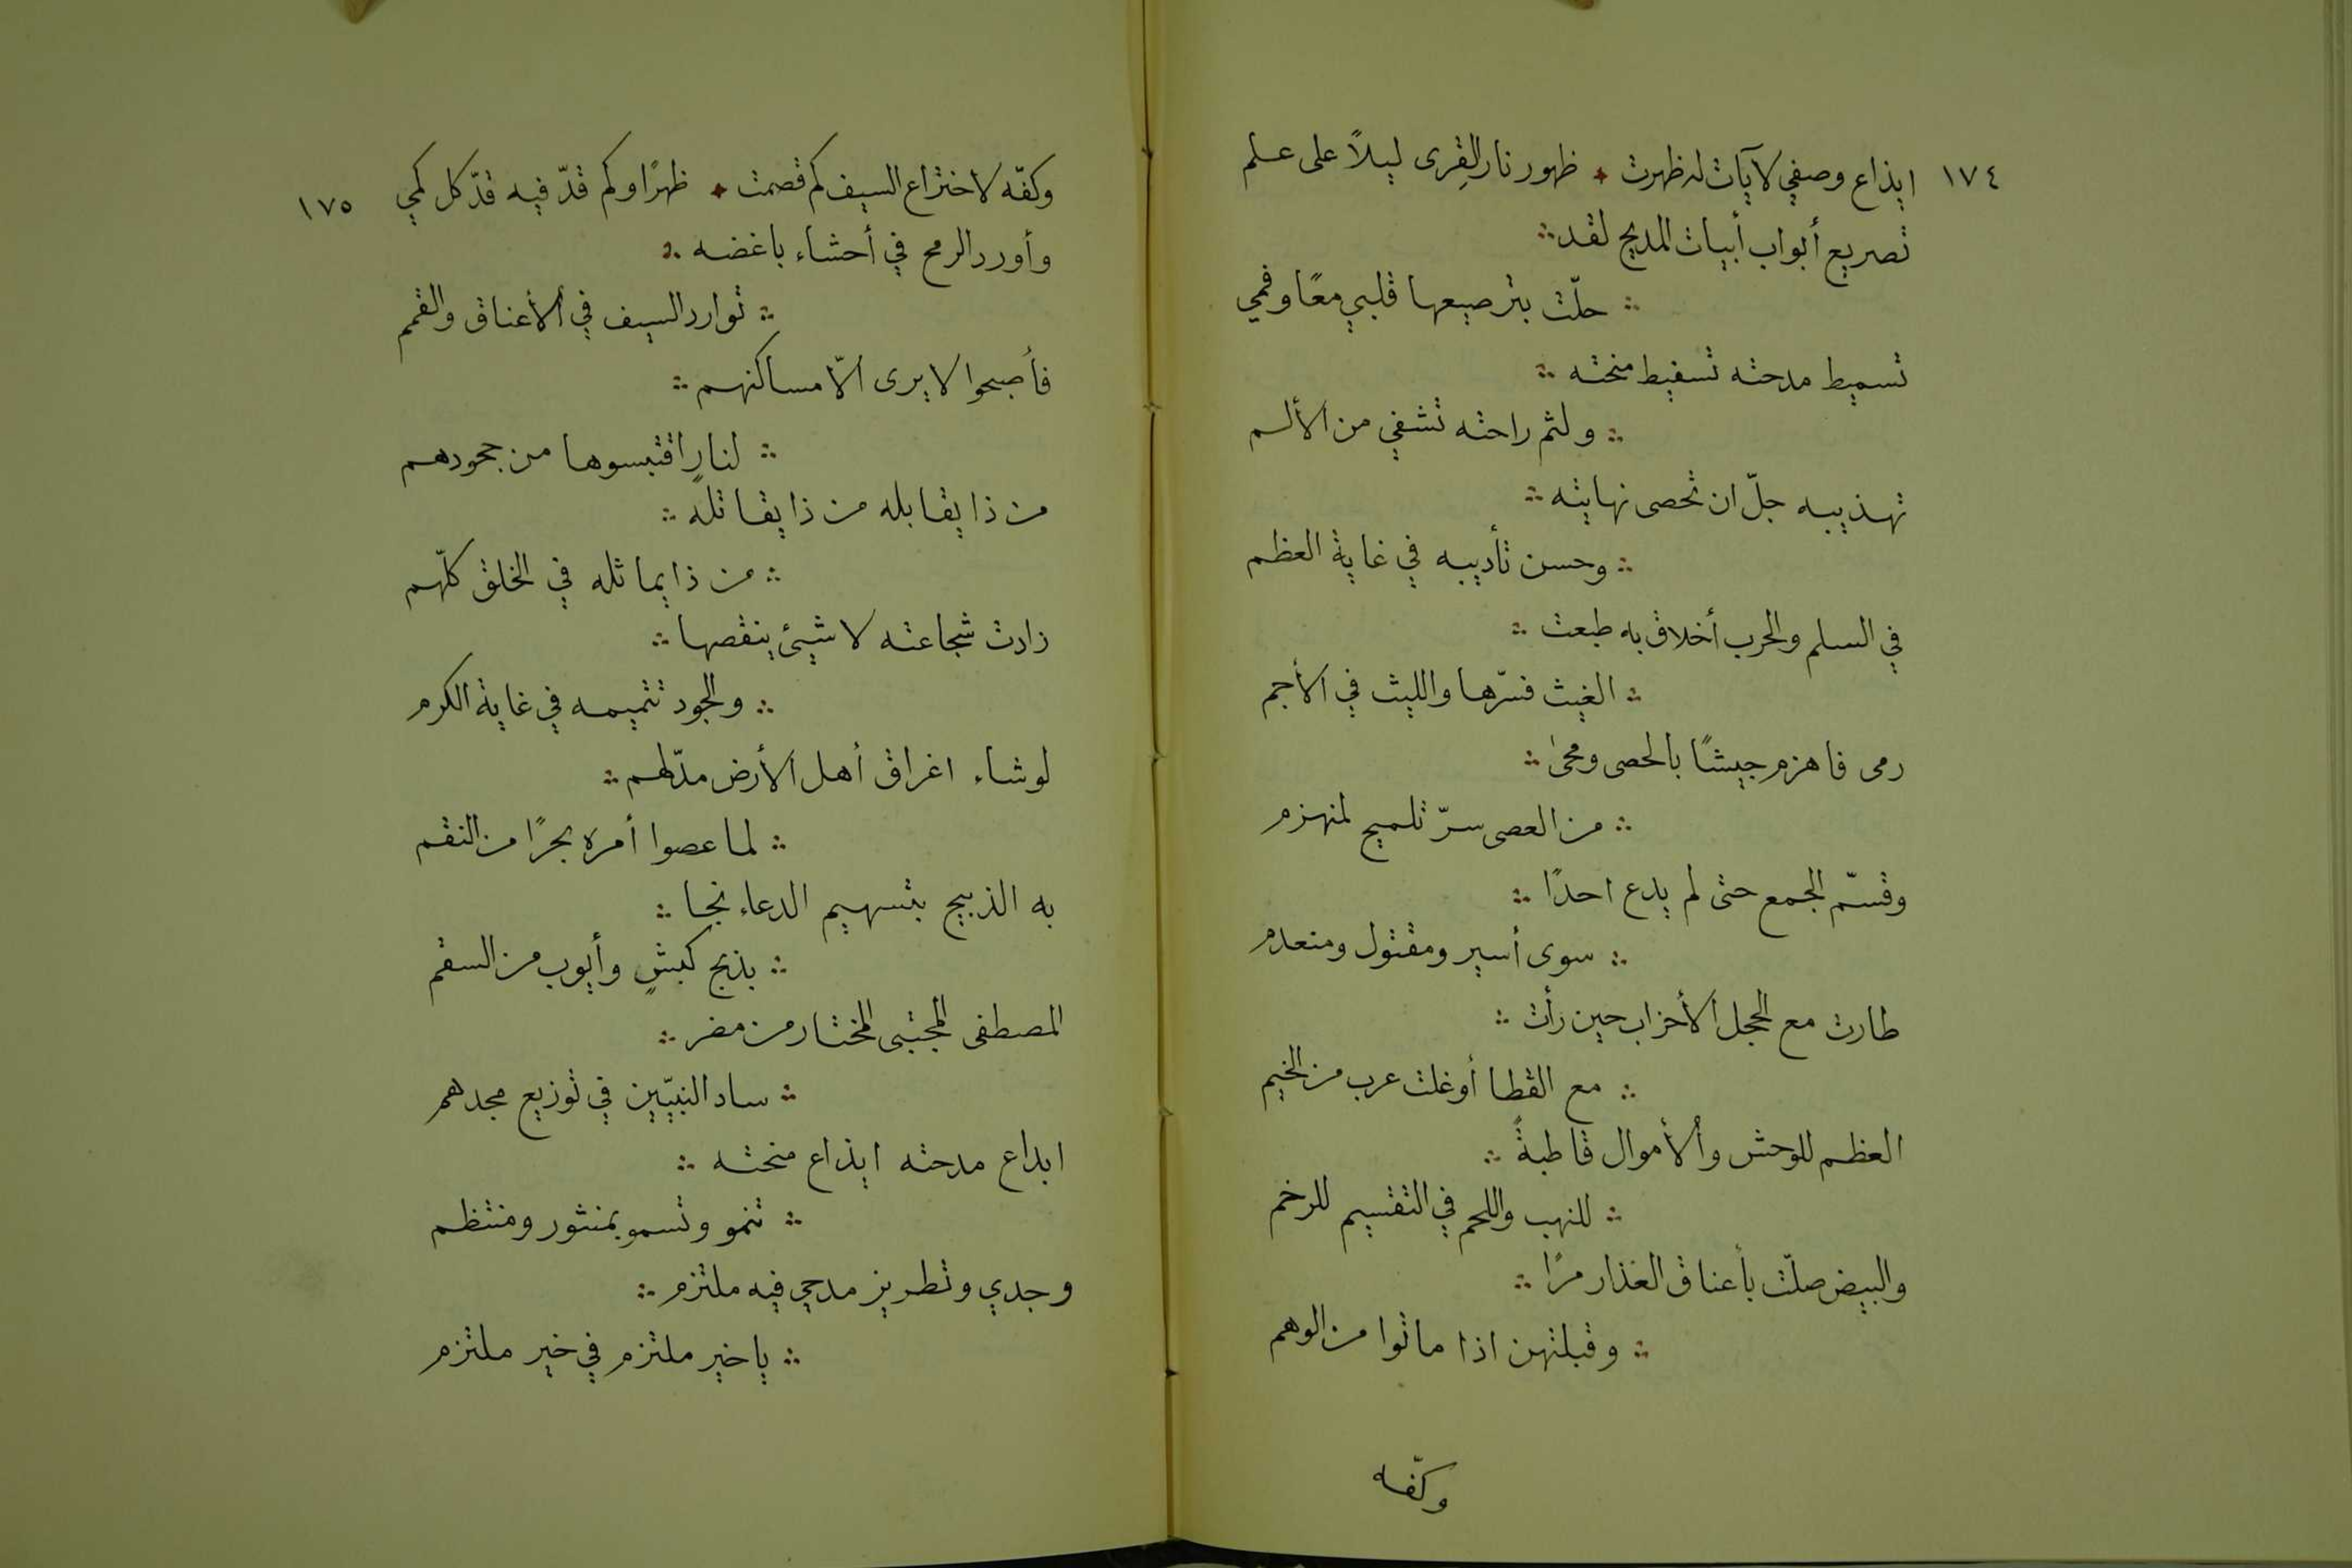 ١٧٤ ايذاع وصفي لآيات له ظهرت ٭ ظهور نار القِرى ليلاً على علم
تصريع أبواب أبيات المديح لقد ∴
∴ حلّت بترصيعها قلبي معًا وفمي
تسميط مدحته تسفيط منحته ∴
∴ ولثم راحته تشفي من الألم
تهذيبه جلّ ان تحصى نهايته ∴
∴ وحسن تأديبه في غاية العظم
في السلم والحرب أخلاق به طبعت ∴
∴ الغيث فسّرها والليث في الأجم
رمى فاهزم جيشًا بالحصى ومحى ∴
∴ من العصى سرّ تلميح لمنهزم
وقسّم الجمع حتى لم يدع احدًا ∴
∴ سوى أسير ومقتول ومنعدم
طارت مع الحجل الأحزاب حين رأت ∴
∴ مع القطا أوغلت عرب من الخيم
العظم للوحش والأموال قاطبةً ∴
∴ للنهب واللحم في التقسيم للرخم
والبيض صلّت بأعناق العذار مرًا ∴
∴ وقبلتهن اذا ماتوا من الوهم
وكفّه
وكفّه لاختراع السيف كم قصمت ٭ ظهرًا وكم قدّ فيه قدّ كل كمي ١٧٥
وأورد الرمح في أحشاء باغضه ∴
∴ توارد السيف في الأعناق والقمم
فأصبحوا لا يرى الّا مساكنهم ∴
∴ لنارٍ اقتبسوها من جحودهم
من ذا يقابله من ذا يقاتله ∴
∴ من ذا يماثله في الخلق كلّهم
زادت شجاعته لا شيئ ينقصها ∴
∴ والجود تتميمه في غاية الكرم
لو شاء اغراق أهل الأرض مدّ لهم ∴
∴ لما عصوا أمره بحرًا من النقم
به الذبيح بتسهيم الدعاء نجا ∴
∴ بذبح كبشٍ وأيوب من السقم
المصطفى المجتبى المختار من مضر ∴
∴ ساد النبيّين في توزيع مجدهم
ابداع مدحته ايذاع منحته ∴
∴ تنمو وتسمو بمنثور ومنتظم
وجدي وتطريز مدحي فيه ملتزم ∴
∴ يا خير ملتزم في خير ملتزم